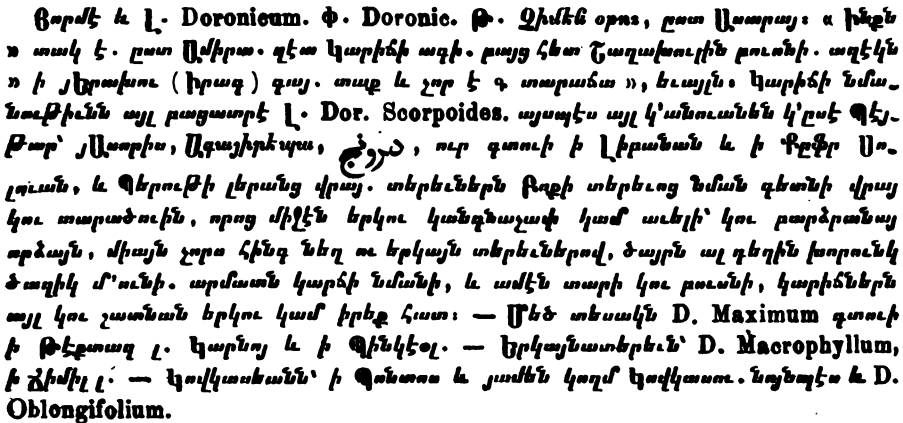 Յորմէ և Լ. Doronicum. Փ. Doronic. Թ. Չիմեն օթու, ըստ Ասարայ։ « ինքն
» տակ է. ըստ Ամիրտ. զէտ Կարիճի ագի. բայց հետ Շաղախուրին բուսնի. աղէկն
» ի յԵրախու (իրագ) գայ. տաք և չոր է գ տարաճա », ևւայլն։ Կարիճի նմա-
նութիւնն այլ բացատրէ Լ. Dor. Scorpoides. այսպէս այլ կ'անուանեն կ'ըսէ Պէյ-
թար՝ յԱսորիս, Ագաշիրէպա, درونج, ուր գտուի ի Լիբանան և ի Քըֆր Սո-
լըւան, և Պերութի լերանց վրայ. տերեւներն Բոքի տերեւոց նման գետնի վրայ
կու տարածուին, որոց միջէն երկու կանգնաչափ կամ աւելի՝ կու բարձրանայ
արձայն, միայն չորս հինգ նեղ ու երկայն տերեւներով, ծայրն ալ դեղին խորունկ
ծաղիկ մ'ունի. արմատն կարճի նմանի, և ամէն տարի կու բուսնի, կարիճներն
այլ կու շատնան երկու կամ իրեք հատ։ — Մեծ տեսակն D. Maximum գտուի
ի Թէքտաղ լ. Կարնոյ և ի Պինկէօլ. — Երկայնատերեւն՝ D. Macrophyllum,
ի Ճիմիլ լ. — Կովկասեանն՝ ի Պոնտոս և յամեն կողմ Կովկասու. նոյնպէս և D.
Oblongifolium.